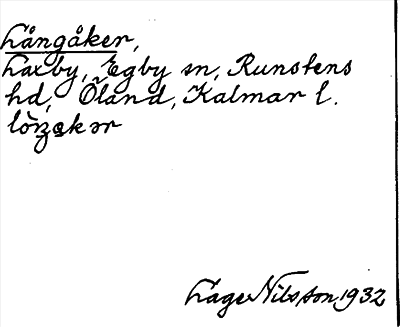 Långåker,
Laxby, Egby sn, Runstens
hd, Öland, Kalmar l.
Lage Nilsson 1932